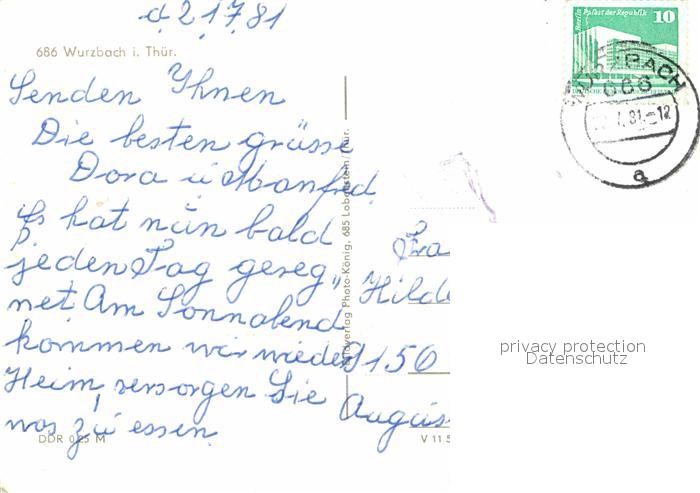 d 21781
686 Wurzbach i. Thür.
Senden Ihnen
Die besten grüsse
Dora u Manfred
Es hat nun bald
jeden Tag gereg„
net Am Sonnabend
kommen wir wieder
Heim, versorgen Sie
was zu essen
DDR 0,25 M
Bildverlag Photo-König, 685 Lobenstein/Thür.
V 11 5
Berlin Palast der Republik 10
DDR
WURZBACH
686
.7.81-12
a
Fra
Hilde
9156
Augus
privacy protection
Datenschutz